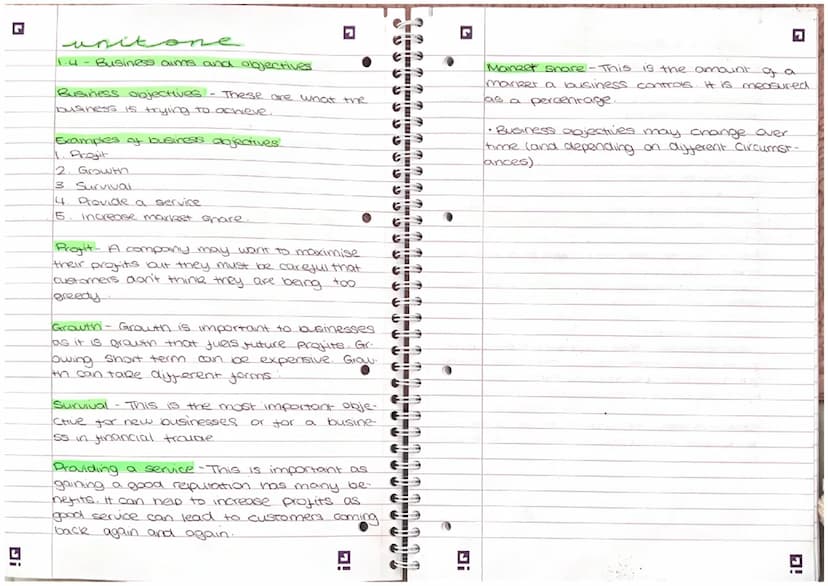 unit one
1.4 - Business aims and objectives
Business objectives - These are what the
business is trying to achieve.
Examples of business objectives
1. Profit
2. Growth
3 Survival
4. Provide a service
5. Increase market share.
Profit - A company may want to maximise
their profits but they must be careful that
customers don't think they are being too
greedy.
Growth - Growth is important to businesses
as it is growth that fuels future profits. Gr-
owing short term can be expensive. Grow-
th can take different forms.
Survival - This is the most important obje-
ctive for new businesses or for a busine-
ss in financial trouble
Providing a service - This is important as
gaining a good reputation has many be-
nefits. It can help to increase profits as
good service can lead to customers coming
back again and again.
Market share - This is the amount of a
market a business controls. It is measured
as a percentage.
• Business objectives may change over
time (and depending on different circumst-
ances)